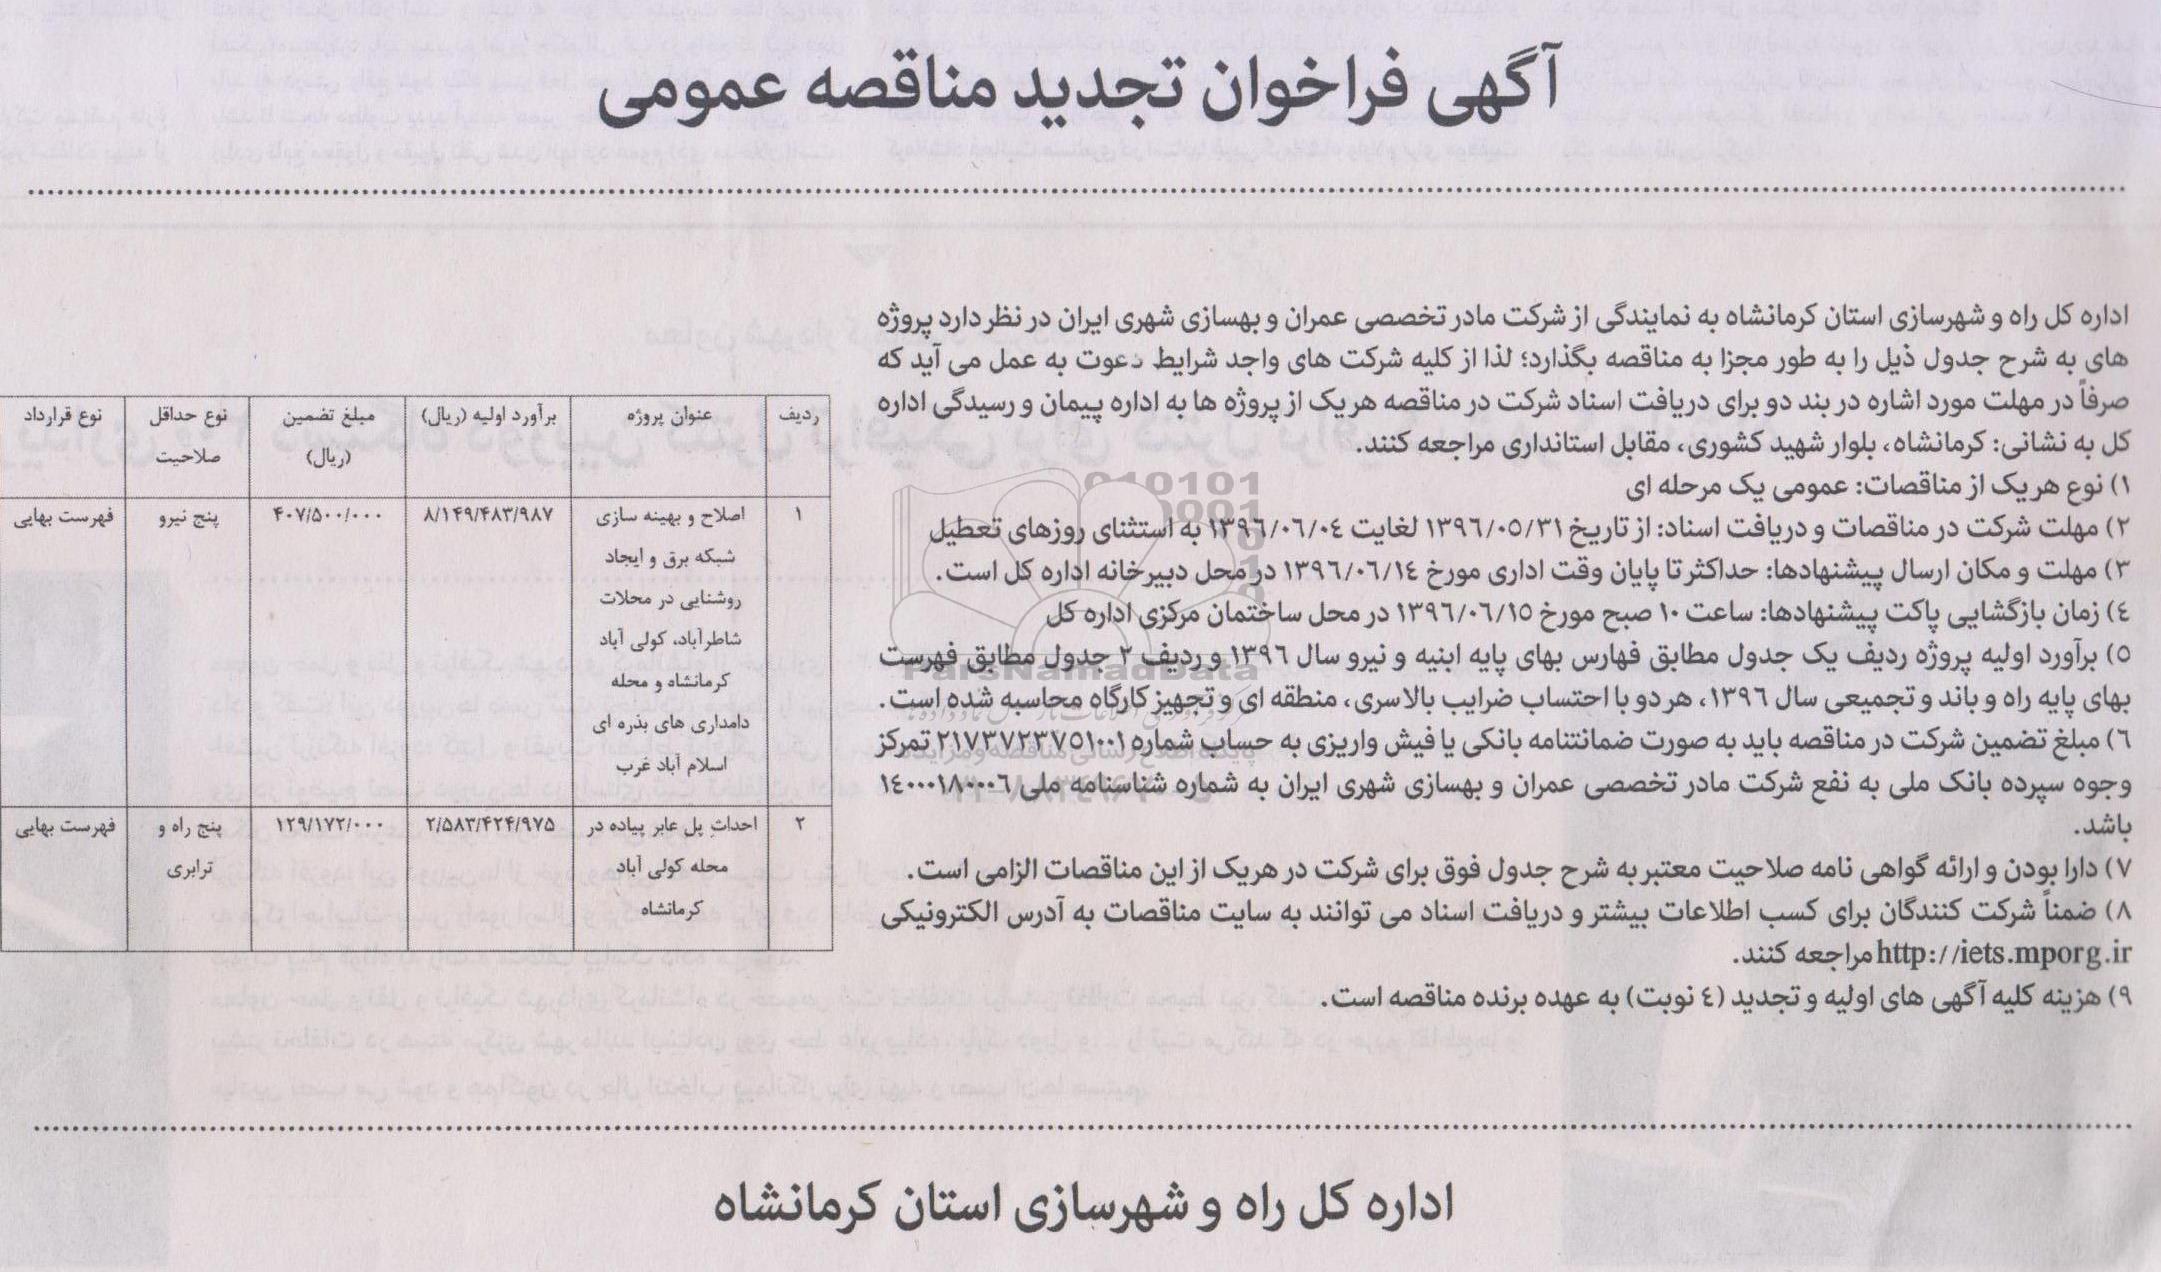 آگهی فراخوان تجدید مناقصه عمومی
اداره کل راه و شهرسازی استان کرمانشاه به نمایندگی از شرکت مادر تخصصی عمران و بهسازی شهری ایران در نظر دارد پروژه
های به شرح جدول ذیل را به طور مجزا به مناقصه بگذارد؛ لذا از کلیه شرکت های واجد شرایط دعوت به عمل می آید که
صرفاً در مهلت مورد اشاره در بند دو برای دریافت اسناد شرکت در مناقصه هر یک از پروژه ها به اداره پیمان و رسیدگی اداره
کل به نشانی: کرمانشاه، بلوار شهید کشوری، مقابل استانداری مراجعه کنند.
۱) نوع هر یک از مناقصات: عمومی یک مرحله ای
۲) مهلت شرکت در مناقصات و دریافت اسناد: از تاریخ ۱۳۹۶/۰۵/۳۱ لغایت ۱۳۹۶/۰۶/۰۴ به استثنای روزهای تعطیل
۳) مهلت و مکان ارسال پیشنهادها: حداکثر تا پایان وقت اداری مورخ ۱۳۹۶/۰۶/۱۴ در محل دبیرخانه اداره کل است.
۴) زمان بازگشایی پاکت پیشنهادها: ساعت ۱۰ صبح مورخ ۱۳۹۶/۰۶/۱۵ در محل ساختمان مرکزی اداره کل
۵) برآورد اولیه پروژه ردیف یک جدول مطابق فهارس بهای پایه ابنیه و نیرو سال ۱۳۹۶ و ردیف ۲ جدول مطابق فهرست
بهای پایه راه و باند و تجمیعی سال ۱۳۹۶، هر دو با احتساب ضرایب بالاسری، منطقه ای و تجهیز کارگاه محاسبه شده است.
۶) مبلغ تضمین شرکت در مناقصه باید به صورت ضمانتنامه بانکی یا فیش واریزی به حساب شماره ۲۱۷۳۷۲۳۷۵۱۰۰۱ تمرکز
وجوه سپرده بانک ملی به نفع شرکت مادر تخصصی عمران و بهسازی شهری ایران به شماره شناسنامه ملی ۱۴۰۰۰۱۸۰۰۰۶
باشد.
۷) دارا بودن و ارائه گواهی نامه صلاحیت معتبر به شرح جدول فوق برای شرکت در هر یک از این مناقصات الزامی است.
۸) ضمناً شرکت کنندگان برای کسب اطلاعات بیشتر و دریافت اسناد می توانند به سایت مناقصات به آدرس الکترونیکی
http://iets.mporg.ir مراجعه کنند.
۹) هزینه کلیه آگهی های اولیه و تجدید (۴ نوبت) به عهده برنده مناقصه است.
ردیف عنوان پروژه برآورد اولیه (ریال) مبلغ تضمین نوع حداقل نوع قرارداد
(ریال) صلاحیت
۱ اصلاح و بهینه سازی ۸/۱۴۹/۴۸۳/۹۸۷ ۴۰۷/۵۰۰/۰۰۰ پنج نیرو فهرست بهایی
شبکه برق و ایجاد
روشنایی در محلات
شاطرآباد، کولی آباد
کرمانشاه و محله
دامداری های بذره ای
اسلام آباد غرب
۲ احداث پل عابر پیاده در ۲/۵۸۳/۴۲۴/۹۷۵ ۱۲۹/۱۷۲/۰۰۰ پنج راه و فهرست بهایی
محله کولی آباد ترابری
کرمانشاه
ParsNamadData
پایگاه اطلاع رسانی مناقصه و مزایده
اداره کل راه و شهرسازی استان کرمانشاه